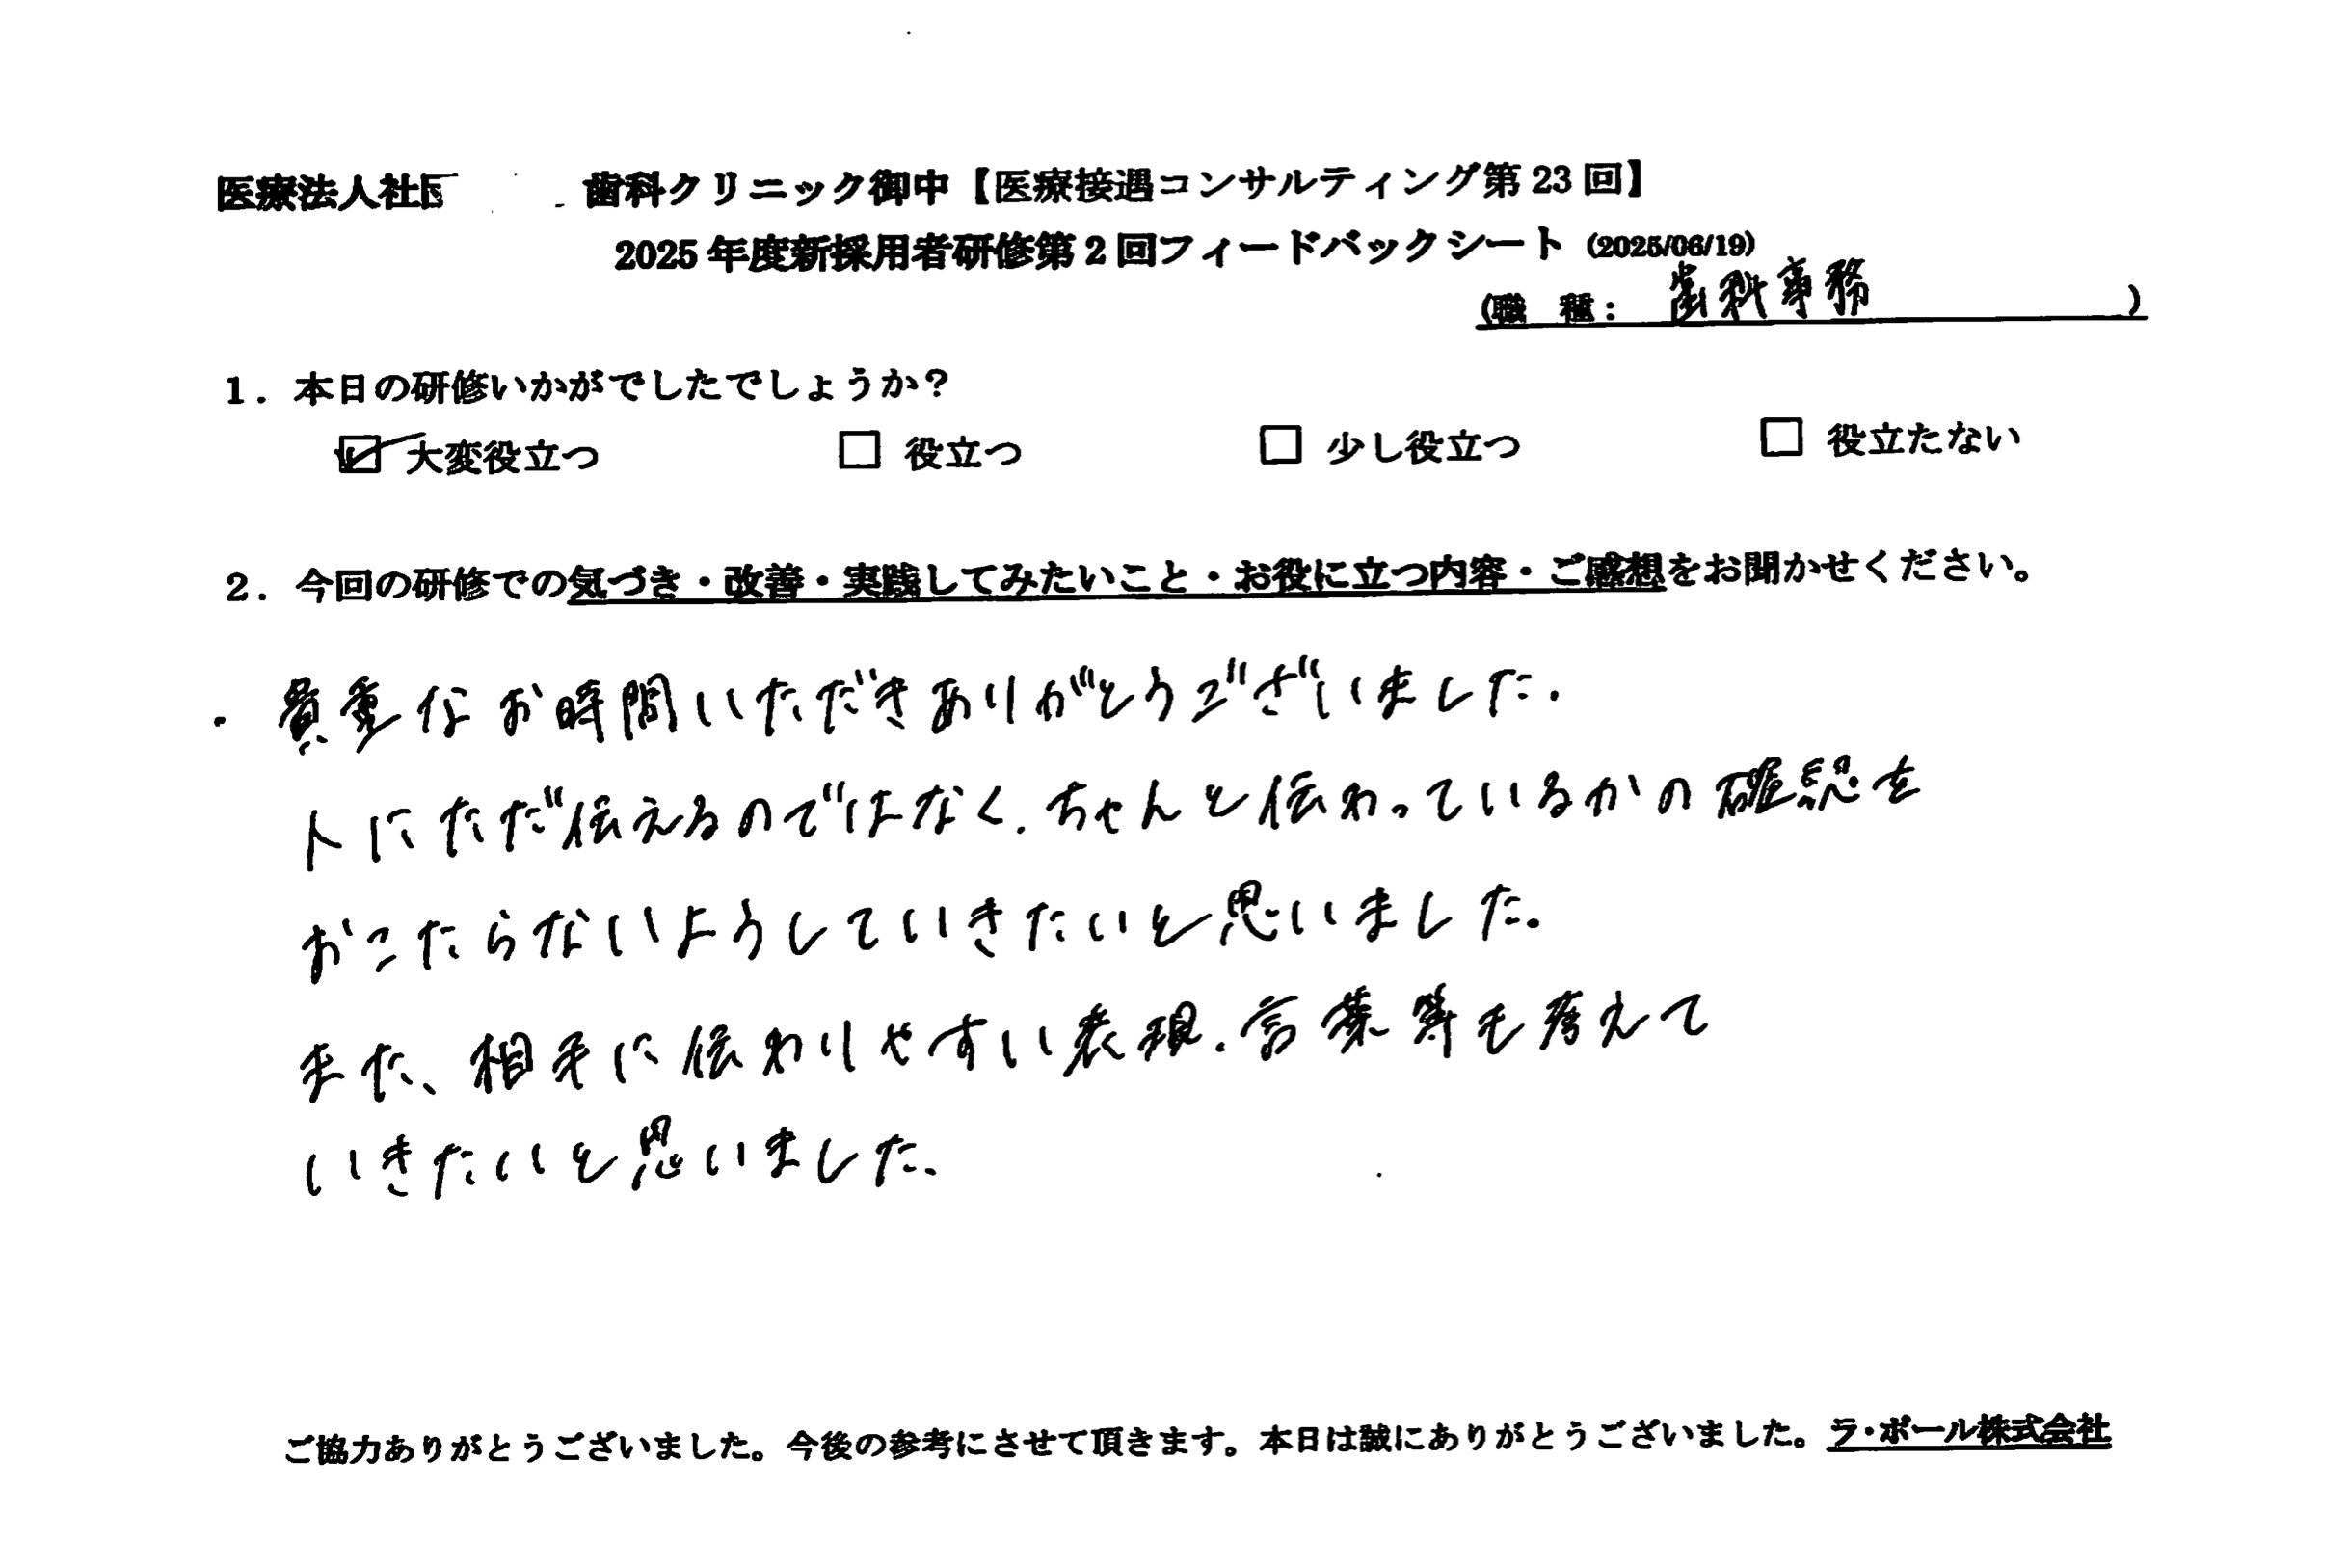 医療法人社団 歯科クリニック御中【医療接遇コンサルティング第23回】
2025年度新採用者研修第2回フィードバックシート（2025/06/19）
(職 種： 歯科事務 )
1．本日の研修いかがでしたでしょうか？
☑ 大変役立つ □ 役立つ □ 少し役立つ □ 役立たない
2．今回の研修での気づき・改善・実践してみたいこと・お役に立つ内容・ご感想をお聞かせください。
・貴重なお時間いただきありがとうございました.
人にただ伝えるのではなく.ちゃんと伝わっているかの確認を
おこたらないようしていきたいと思いました.
また、相手に伝わりやすい表現.言葉等も考えて
いきたいと思いました.
ご協力ありがとうございました。今後の参考にさせて頂きます。本日は誠にありがとうございました。ラ・ポール株式会社